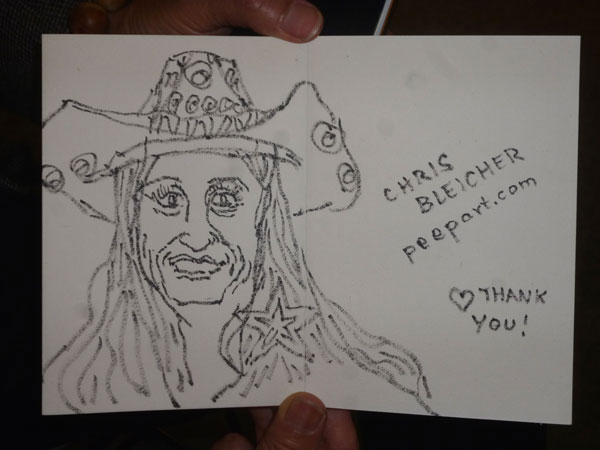 CHRIS
BLEICHER
peepart.com
♡ THANK
YOU!